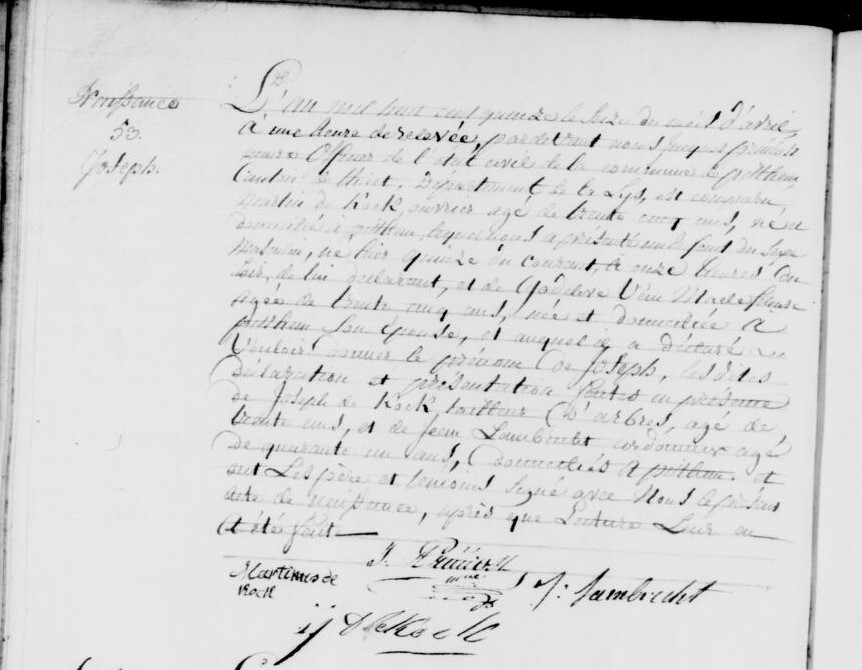 Naissance
53.
Joseph.
L'an mil huit cent quinze le seize du mois d'avril,
à une heure de relevée, pardevant nous
Officier de l'état civil de la commune de pitthem,
Canton de thielt, Département de la Lys, est comparu
martin de Kock, ouvrier agé de trente cinq ans, né et
domicilié à pitthem, lequel nous a présenté un enfant du sexe
masculin, né hier quinze du courant, à onze heures du
soir, de lui déclarant, et de Godelive Van Maele fileuse
agée de trente cinq ans, née et domiciliée à
pitthem son épouse, et auquel il a déclaré
vouloir donner le prénom de Joseph, les dites
déclaration et présentation faites en présence
de Joseph de Kock, tailleur d'arbres, agé de
trente ans, et de Jean Lambrecht cordonnier agé
de quarante un ans, domiciliés à pitthem. et
ont les père et témoins signé avec Nous le présent
acte de naissance, après que Lecture Leur en
a été faite
Martinus de
Kock
J: Lambrecht
J de Kock